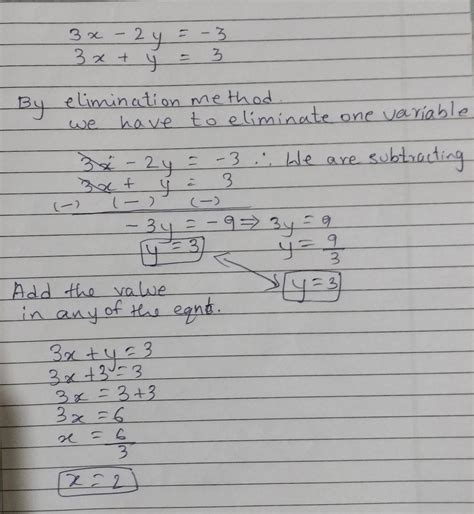 3x - 2y = -3
3x + y = 3
By elimination method.
we have to eliminate one variable
3x - 2y = -3 ∴ We are subtracting
3x + y = 3
(-) (-) (-)
-3y = -9 ⇒ 3y = 9
y = 3
y = 9/3
y = 3
Add the value
in any of the eqnt.
3x + y = 3
3x + 3 = 3
3x = 3 + 3
3x = 6
x = 6/3
x = 2